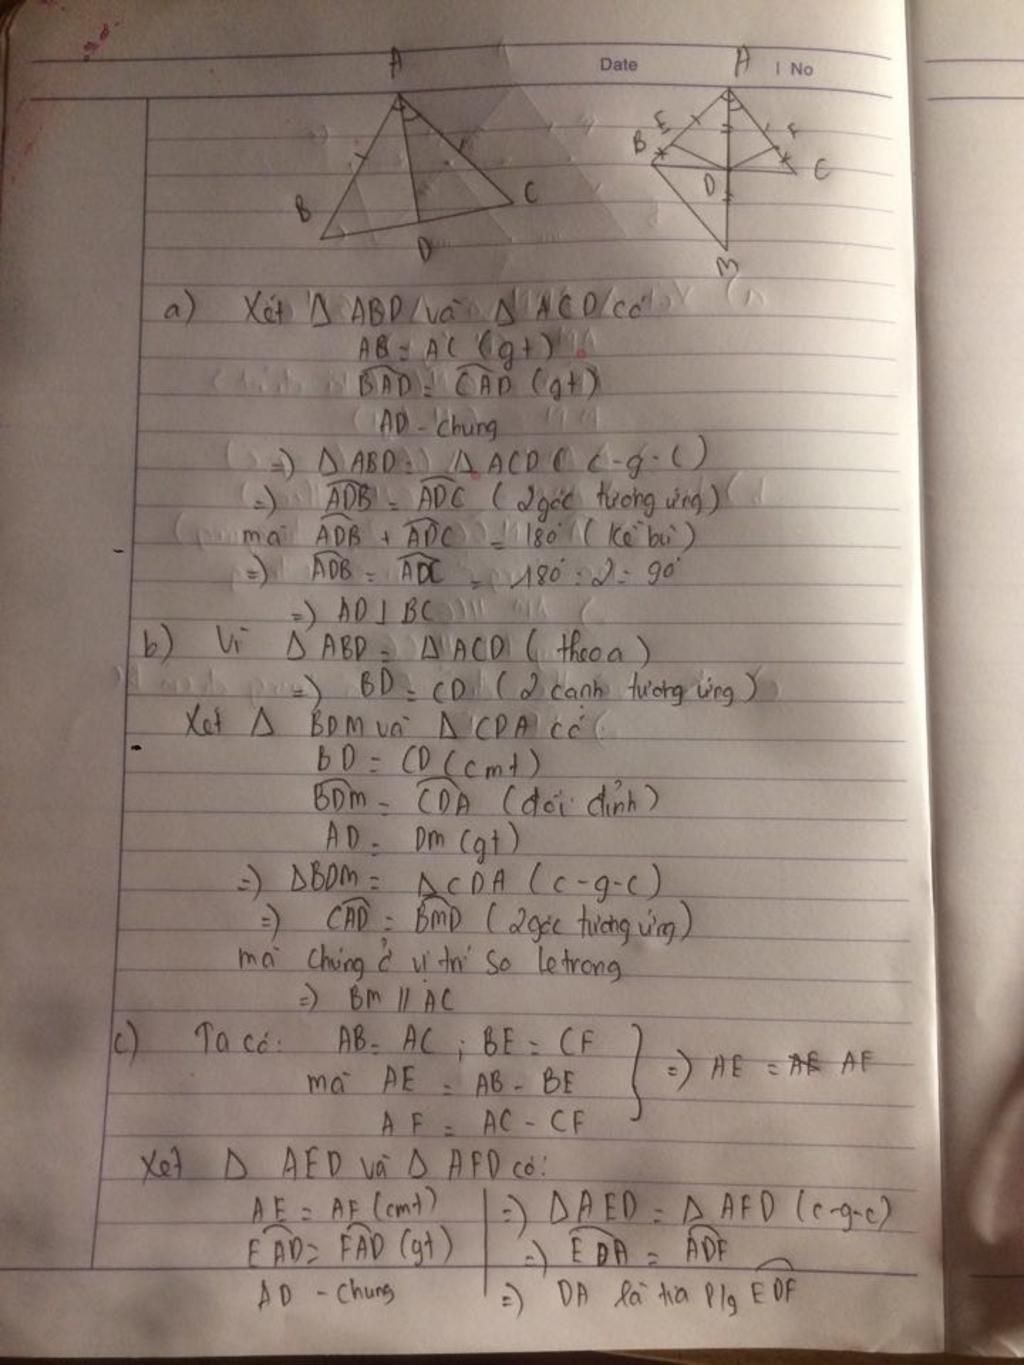 Date | No
A
B
D
C
A
E
B
F
C
D
M
a) Xét Δ ABD và Δ ACD có
AB = AC (gt)
BAD = CAD (gt)
AD - chung
=) Δ ABD = Δ ACD ( c-g-c)
=) ADB = ADC ( 2 góc tương ứng)
mà ADB + ADC = 180° ( kề bù )
=) ADB = ADC = 180° : 2 = 90°
=) AD ⊥ BC
b) Vì Δ ABD = Δ ACD ( theo a )
=) BD = CD ( 2 cạnh tương ứng )
Xét Δ BDM và Δ CDA có
BD = CD (cmt)
BDM = CDA (đối đỉnh)
AD = DM (gt)
=) ΔBDM = ΔCDA ( c-g-c)
=) CAD = BMD ( 2 góc tương ứng)
mà chúng ở vị trí so le trong
=) BM // AC
c) Ta có: AB = AC ; BE = CF
mà AE = AB - BE } =) AE = AF
AF = AC - CF
Xét Δ AED và Δ AFD có:
AE = AF (cmt) | =) ΔAED = Δ AFD (c-g-c)
EAD = FAD (gt) | =) EDA = ADF
AD - chung | =) DA là tia p/g EDF